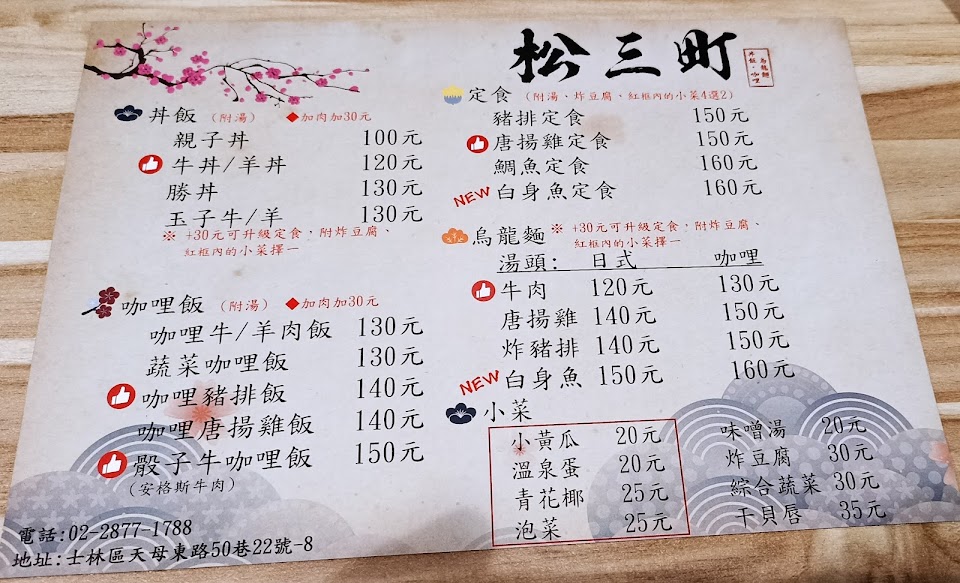 松三町
丼飯·咖哩
烏龍麵
丼飯 (附湯) ◆加肉加30元
親子丼 100元
牛丼/羊丼 120元
勝丼 130元
玉子牛/羊 130元
※ +30元可升級定食，附炸豆腐、
紅框內的小菜擇一
咖哩飯 (附湯) ◆加肉加30元
咖哩牛/羊肉飯 130元
蔬菜咖哩飯 130元
咖哩豬排飯 140元
咖哩唐揚雞飯 140元
骰子牛咖哩飯 150元
(安格斯牛肉)
電話:02-2877-1788
地址:士林區天母東路50巷22號-8
定食 (附湯、炸豆腐、紅框內的小菜4選2)
豬排定食 150元
唐揚雞定食 150元
鯛魚定食 160元
NEW 白身魚定食 160元
烏龍麵 ※ +30元可升級定食，附炸豆腐、
紅框內的小菜擇一
湯頭: 日式 咖哩
牛肉 120元 130元
唐揚雞 140元 150元
炸豬排 140元 150元
NEW 白身魚 150元 160元
小菜
小黃瓜 20元
溫泉蛋 20元
青花椰 25元
泡菜 25元
味噌湯 20元
炸豆腐 30元
綜合蔬菜 30元
干貝唇 35元